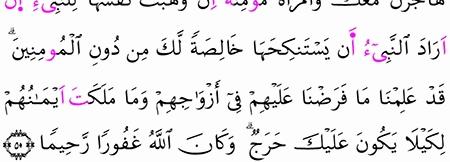 هَاجَرْنَ مَعَكَ وَٱمْرَأَةً مُّؤْمِنَةً إِن وَهَبَتْ نَفْسَهَا لِلنَّبِىِٓٔ اِنْ
اَرَادَ ٱلنَّبِىٓءُ أَن يَسْتَنكِحَهَا خَالِصَةً لَّكَ مِن دُونِ ٱلْمُومِنِينَۗ
قَدْ عَلِمْنَا مَا فَرَضْنَا عَلَيْهِمْ فِىٓ أَزْوَٰجِهِمْ وَمَا مَلَكَتَ اَيْمَٰنُهُمْ
لِكَيْلَا يَكُونَ عَلَيْكَ حَرَجٌۗ وَكَانَ ٱللَّهُ غَفُورًا رَّحِيمًا ٥٠